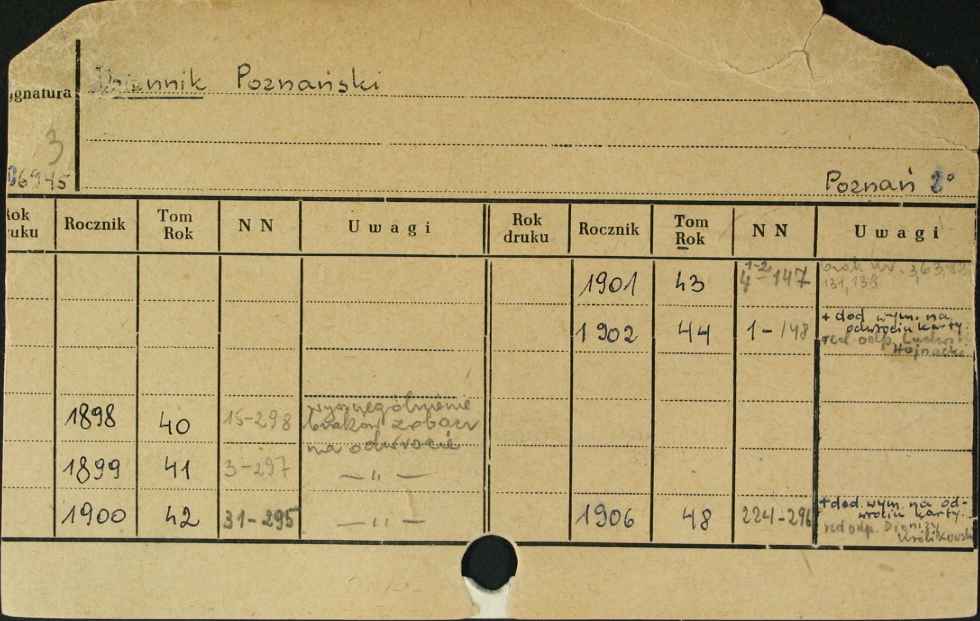 gnatura Dziennik Poznański
3
6945
Poznań 2°
Rok druku Rocznik Tom Rok NN Uwagi Rok druku Rocznik Tom Rok NN Uwagi
1901 43 1-2 4-147 brak nr. 3, 63,
131, 138
1902 44 1-148 + dod wym. na
odwrociu karty.
red odp.
1898 40 15-298 wyszczególnienie
braków zobacz
na odwrocie
1899 41 3-297 — " —
1900 42 31-295 — " —
1906 48 224-296 + dod. wym. na od-
wrociu karty.
red odp. Dionizy
Królikowski